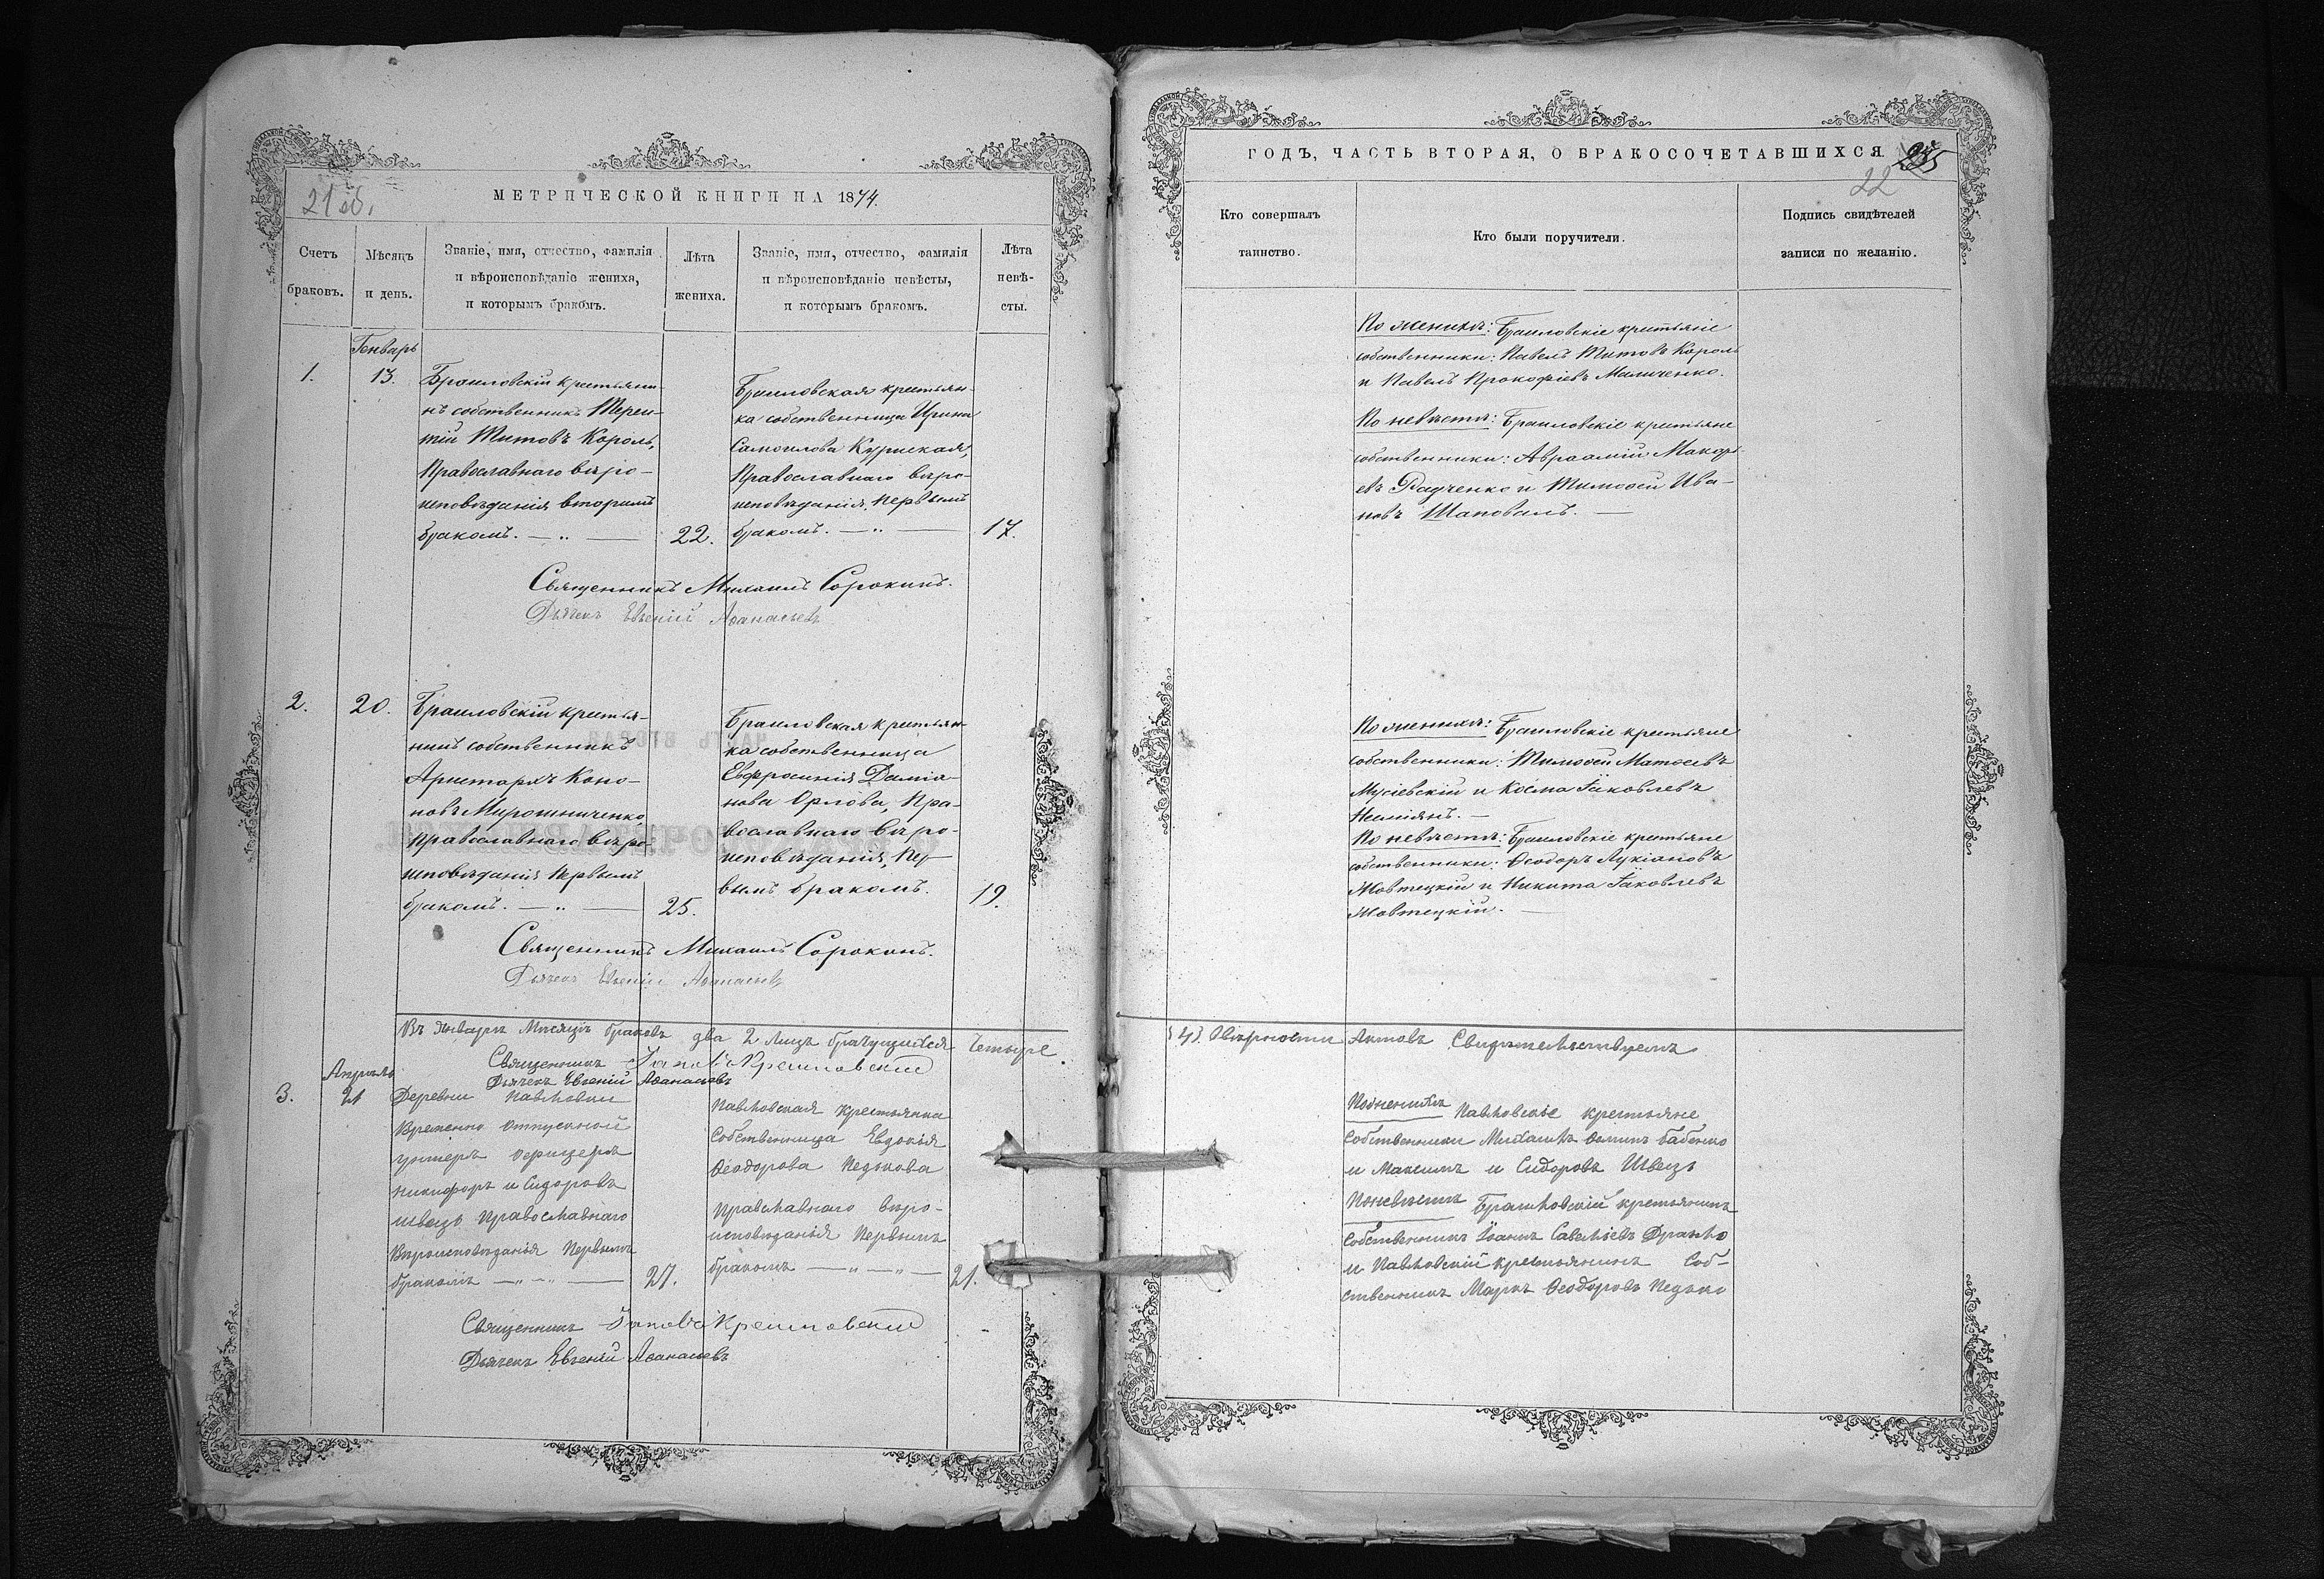 МЕТРИЧЕСКОЙ КНИГИ НА 1874.
21 об.
Счетъ браковъ.
Мѣсяцъ и день.
Званіе, имя, отчество, фамилія и вѣроисповѣданіе жениха, и которымъ бракомъ.
Лѣта жениха.
Званіе, имя, отчество, фамилія и вѣроисповѣданіе невѣсты, и которымъ бракомъ.
Лѣта невѣ-сты.
Генварь
1.
13.
Браиловскій крестьяни-
нъ собственникъ Терен-
тій Титовъ Король,
Православнаго вѣро-
исповѣданія вторымъ
бракомъ. — „ —
22.
Браиловская крестьян-
ка собственница Ирина
Самоилова Куриская,
Православнаго вѣро-
исповѣданія, первымъ
бракомъ. — „ —
17.
Священникъ Михаилъ Сорокинъ.
Дьячекъ Евгеній Аѳанасьевъ
2.
20.
Браиловскій крестья-
нинъ собственникъ
Аристархъ Коно-
новъ Мирошниченко,
Православнаго вѣро-
исповѣданія первымъ
бракомъ. — „ —
25.
Браиловская крестьян-
ка собственница
Евфросинія Даміа-
нова Орлова, Пра-
вославнаго вѣро-
исповѣданія, пер-
вымъ бракомъ.
19.
Священникъ Михаилъ Сорокинъ.
Дьячекъ Евгеній Аѳанасьевъ
Въ Январѣ Мѣсяцѣ браковъ два 2 лицъ брачущихся четыре
Священникъ Іаковъ Крешновскій
Дьячекъ Евгеній Аѳанасьевъ
Апрѣль
3.
21
Деревни Павловки
Временно отпускной
унтеръ офицеръ
Никифоръ Сидоровъ
Швець Православнаго
Вѣроисповѣданія Первымъ
бракомъ — „ — „ —
27.
Павловская крестьянка
Собственница Евдокія
Ѳеодорова Педькова
Православнаго вѣро-
исповѣданія Первымъ
бракомъ — „ — „ —
21.
Священникъ Іаковъ Крешновскій
Дьячекъ Евгеній Аѳанасьевъ
ГОДЪ, ЧАСТЬ ВТОРАЯ, О БРАКОСОЧЕТАВШИХСЯ
22
Кто совершалъ таинство.
Кто были поручители.
Подпись свидѣтелей записи по желанію.
По женихѣ: Браиловскіе крестьяне
собственники: Павелъ Титовъ Король
и Павелъ Прокофіевъ Маличенко.
По невѣстѣ: Браиловскіе крестьяне
собственники: Авраамій Макарі-
евъ Радченко и Тимоѳей Ива-
новъ Шаповалъ. —
По женихѣ: Браиловскіе крестьяне
собственники: Тимоѳей Матѳеевъ
Мусіевскій и Косма Іаковлевъ
По невѣстѣ: Браиловскіе крестьяне
собственники: Ѳеодоръ Лукіановъ
Жовтецкій и Никита Іаковлевъ
Жовтецкій. —
(4) Овѣрности Актовъ Свидѣтельствуемъ
По женихѣ Павловскіе крестьяне
Собственники Михаилъ Ѳоминъ Бабенко
и Максимъ Сидоровъ Швець
По невѣстѣ Браиловскій крестьянинъ
Собственникъ Іоаннъ Савеліевъ Драйло
и Павловскій крестьянинъ Соб-
ственникъ Маркъ Ѳеодоровъ Педько